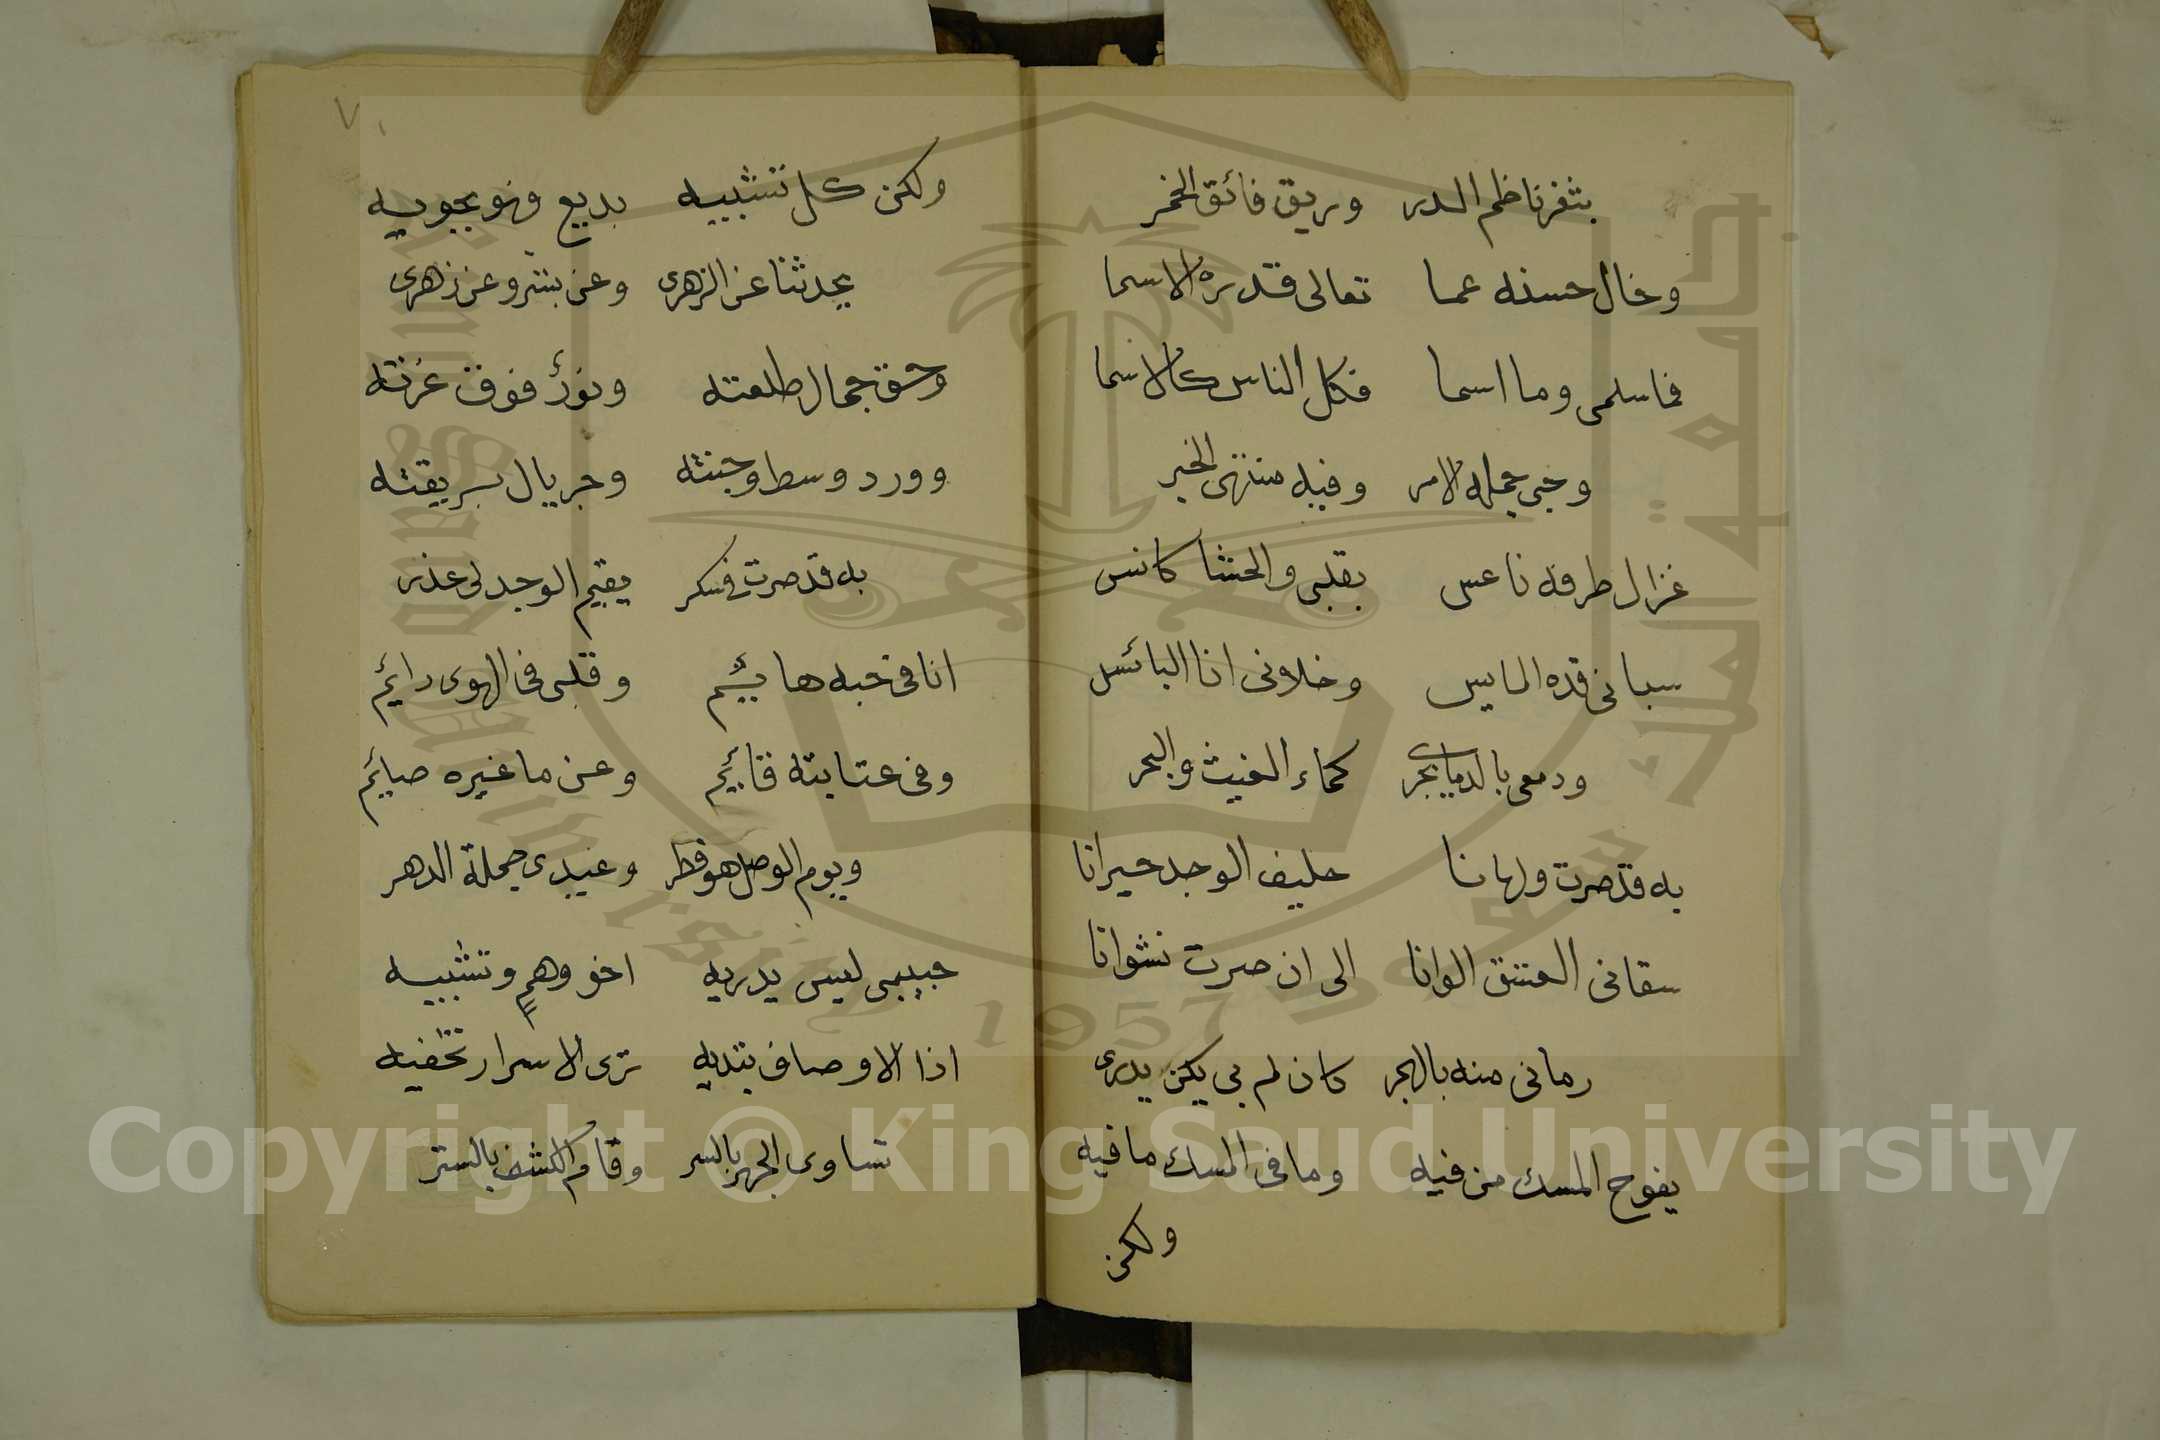 بثغر ناظم الدر وريق فائق الخمر
وخال حسنه عما تعالى قدره الاسما
فما سلمى وما اسما فكل الناس كالاسما
وحبى جملة الامر وفيه منتهى الخبر
غزال طرفه ناعس بقلبى والحشا كانس
سبانى قده المايس وخلانى انا البائس
ودمعى بالدما يجرى كماء الغيث والبحر
به قد صرت ولهانا حليف الوجد حيرانا
سقانى العشق الوانا الى ان صرت نشوانا
رمانى منه بالهجر كان لم بى يكن يدرى
يفوح المسك من فيه وما فى المسك ما فيه
ولكن
٧١
ولكن كل تشبيه بديع فهو يحويه
يحدثنا عن الزهرى وعن بشر وعن زهرى
وحق جمال طلعته ونور فوق غرته
وورد وسط وجنته وجريال بريقته
به قد صرت فى سكر يقيم الوجد لى عذر
انا فى حبه هائيم وقلبى فى الهوى دائيم
وفى عتابته قائيم وعن ما غيره صائيم
ويوم الوصل هو فطر وعيدى جملة الدهر
حبيبى ليس يدريه اخو وهم وتشبيه
اذا الاوصاف بتديه ترى الاسرار تخفيه
تساوى الجهر بالسر وقام الكشف بالستر
Copyright © King Saud University
جامعة الملك سعود
King Saud University
1957